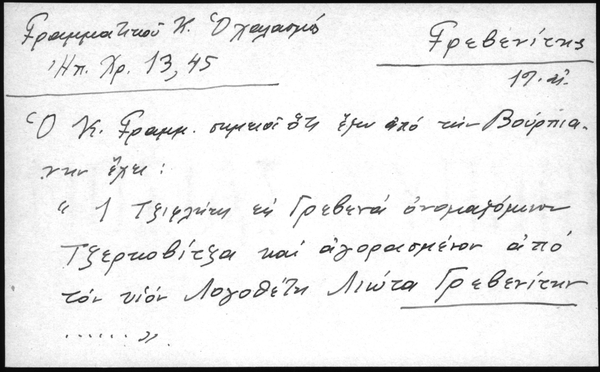 Γραμματικού Κ. Ὁ χαλασμός
Ἠπ. Χρ. 13, 45
Γρεβενίτης
19. αἰ.
Ὁ Κ. Γραμμ. σημειοῖ ὅτι ἔξω ἀπό τήν Βούρπια-
νην ἔχει :
" 1 Τζιφλίκι εἰς Γρεβενά ὀνομαζόμενον
Τζερκοβίτζα καί ἀγορασμένον ἀπό
τόν υἱόν Λογοθέτη Λιώτα Γρεβενίτην
...... ".